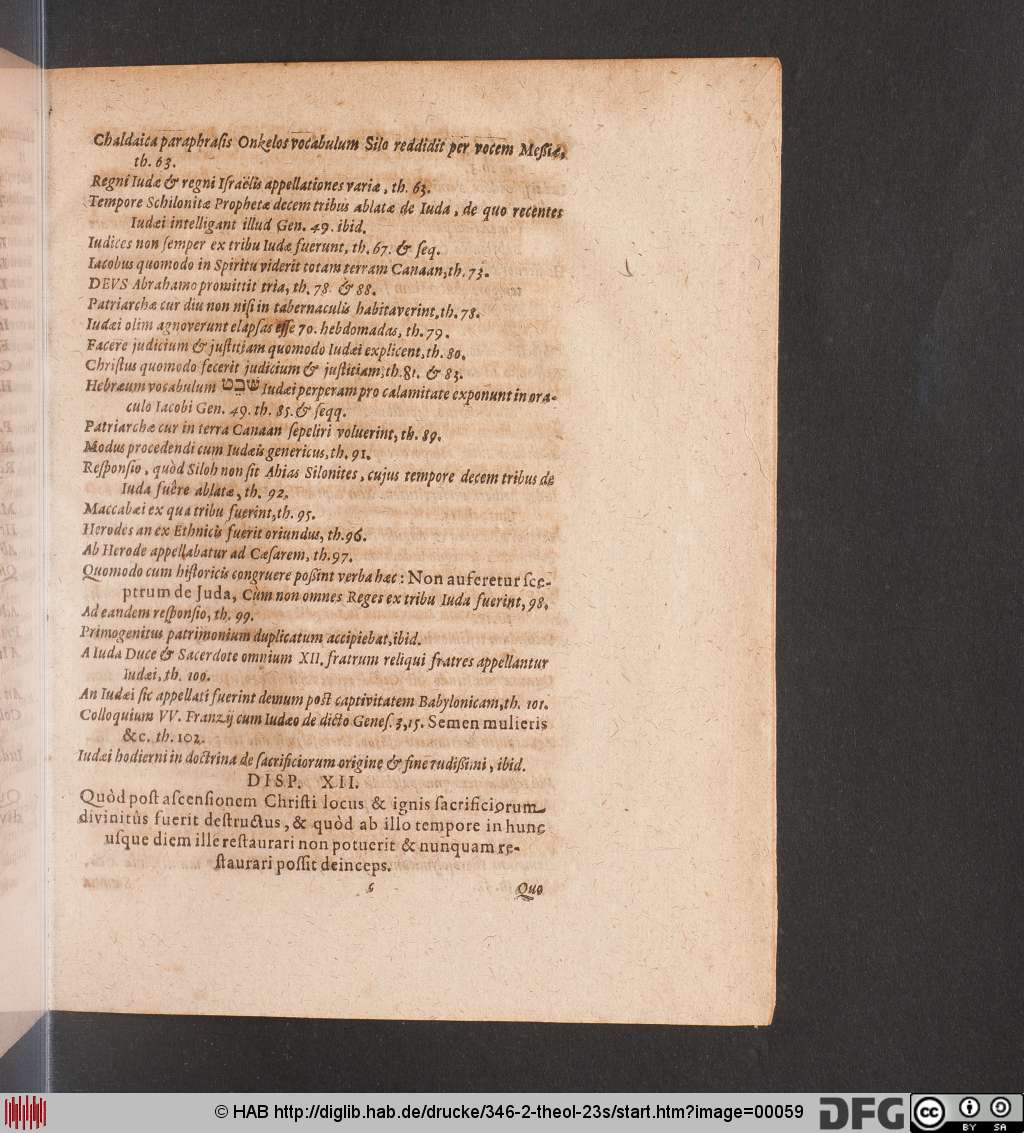 Chaldaica paraphrasis Onkelos vocabulum Silo reddidit per vocem Meßiæ,
th. 63.
Regni Iudæ & regni Israëlis appellationes variæ, th. 63.
Tempore Schilonitæ Prophetæ decem tribus ablatæ de Iuda, de quo recentes
Iudæi intelligant illud Gen. 49. ibid.
Iudices non semper ex tribu Iudæ fuerunt, th. 67. & seq.
Iacobus quomodo in Spiritu viderit totam terram Canaan, th. 73.
DEUS Abrahamo promittit tria, th. 78. & 88.
Patriarchæ cur diu non nisi in tabernaculis habitaverint, th. 78.
Iudæi olim agnoverunt elapsas esse 70. hebdomadas, th. 79.
Facere judicium & justitiam quomodo Iudæi explicent, th. 80.
Christus quomodo fecerit judicium & justitiam, th. 81. & 83.
Hebræum vocabulum שבט Iudæi perperam pro calamitate exponunt in ora-
culo Iacobi Gen. 49. th. 85. & seqq.
Patriarchæ cur in terra Canaan sepeliri voluerint, th. 89.
Modus procedendi cum Iudæis genericus, th. 91.
Responsio, quòd Siloh non sit Ahias Silonites, cujus tempore decem tribus de
Iuda fuêre ablatæ, th. 92.
Maccabæi ex qua tribu fuerint, th. 95.
Herodes an ex Ethnicis fuerit oriundus, th. 96.
Ab Herode appellabatur ad Cæsarem, th. 97.
Quomodo cum historicis congruere poßint verba hæc: Non auferetur sce-
ptrum de Juda, Cum non omnes Reges ex tribu Iuda fuerint, 98.
Ad eandem responsio, th. 99.
Primogenitus patrimonium duplicatum accipiebat, ibid.
A Iuda Duce & Sacerdote omnium XII. fratrum reliqui fratres appellantur
Iudæi, th. 100.
An Iudæi sic appellati fuerint demum post captivitatem Babylonicam, th. 101.
Colloquium VV. Franzij cum Iudæo de dicto Genes. 3, 15. Semen mulieris
&c. th. 102.
Iudæi hodierni in doctrina de sacrificiorum origine & fine rudißimi, ibid.
DISP. XII.
Quòd post ascensionem Christi locus & ignis sacrificiorum
divinitùs fuerit destructus, & quòd ab illo tempore in hunc
usque diem ille restaurari non potuerit & nunquam re-
staurari possit deinceps.
c Quo
© HAB http://diglib.hab.de/drucke/346-2-theol-23s/start.htm?image=00059
DFG
cc BY SA